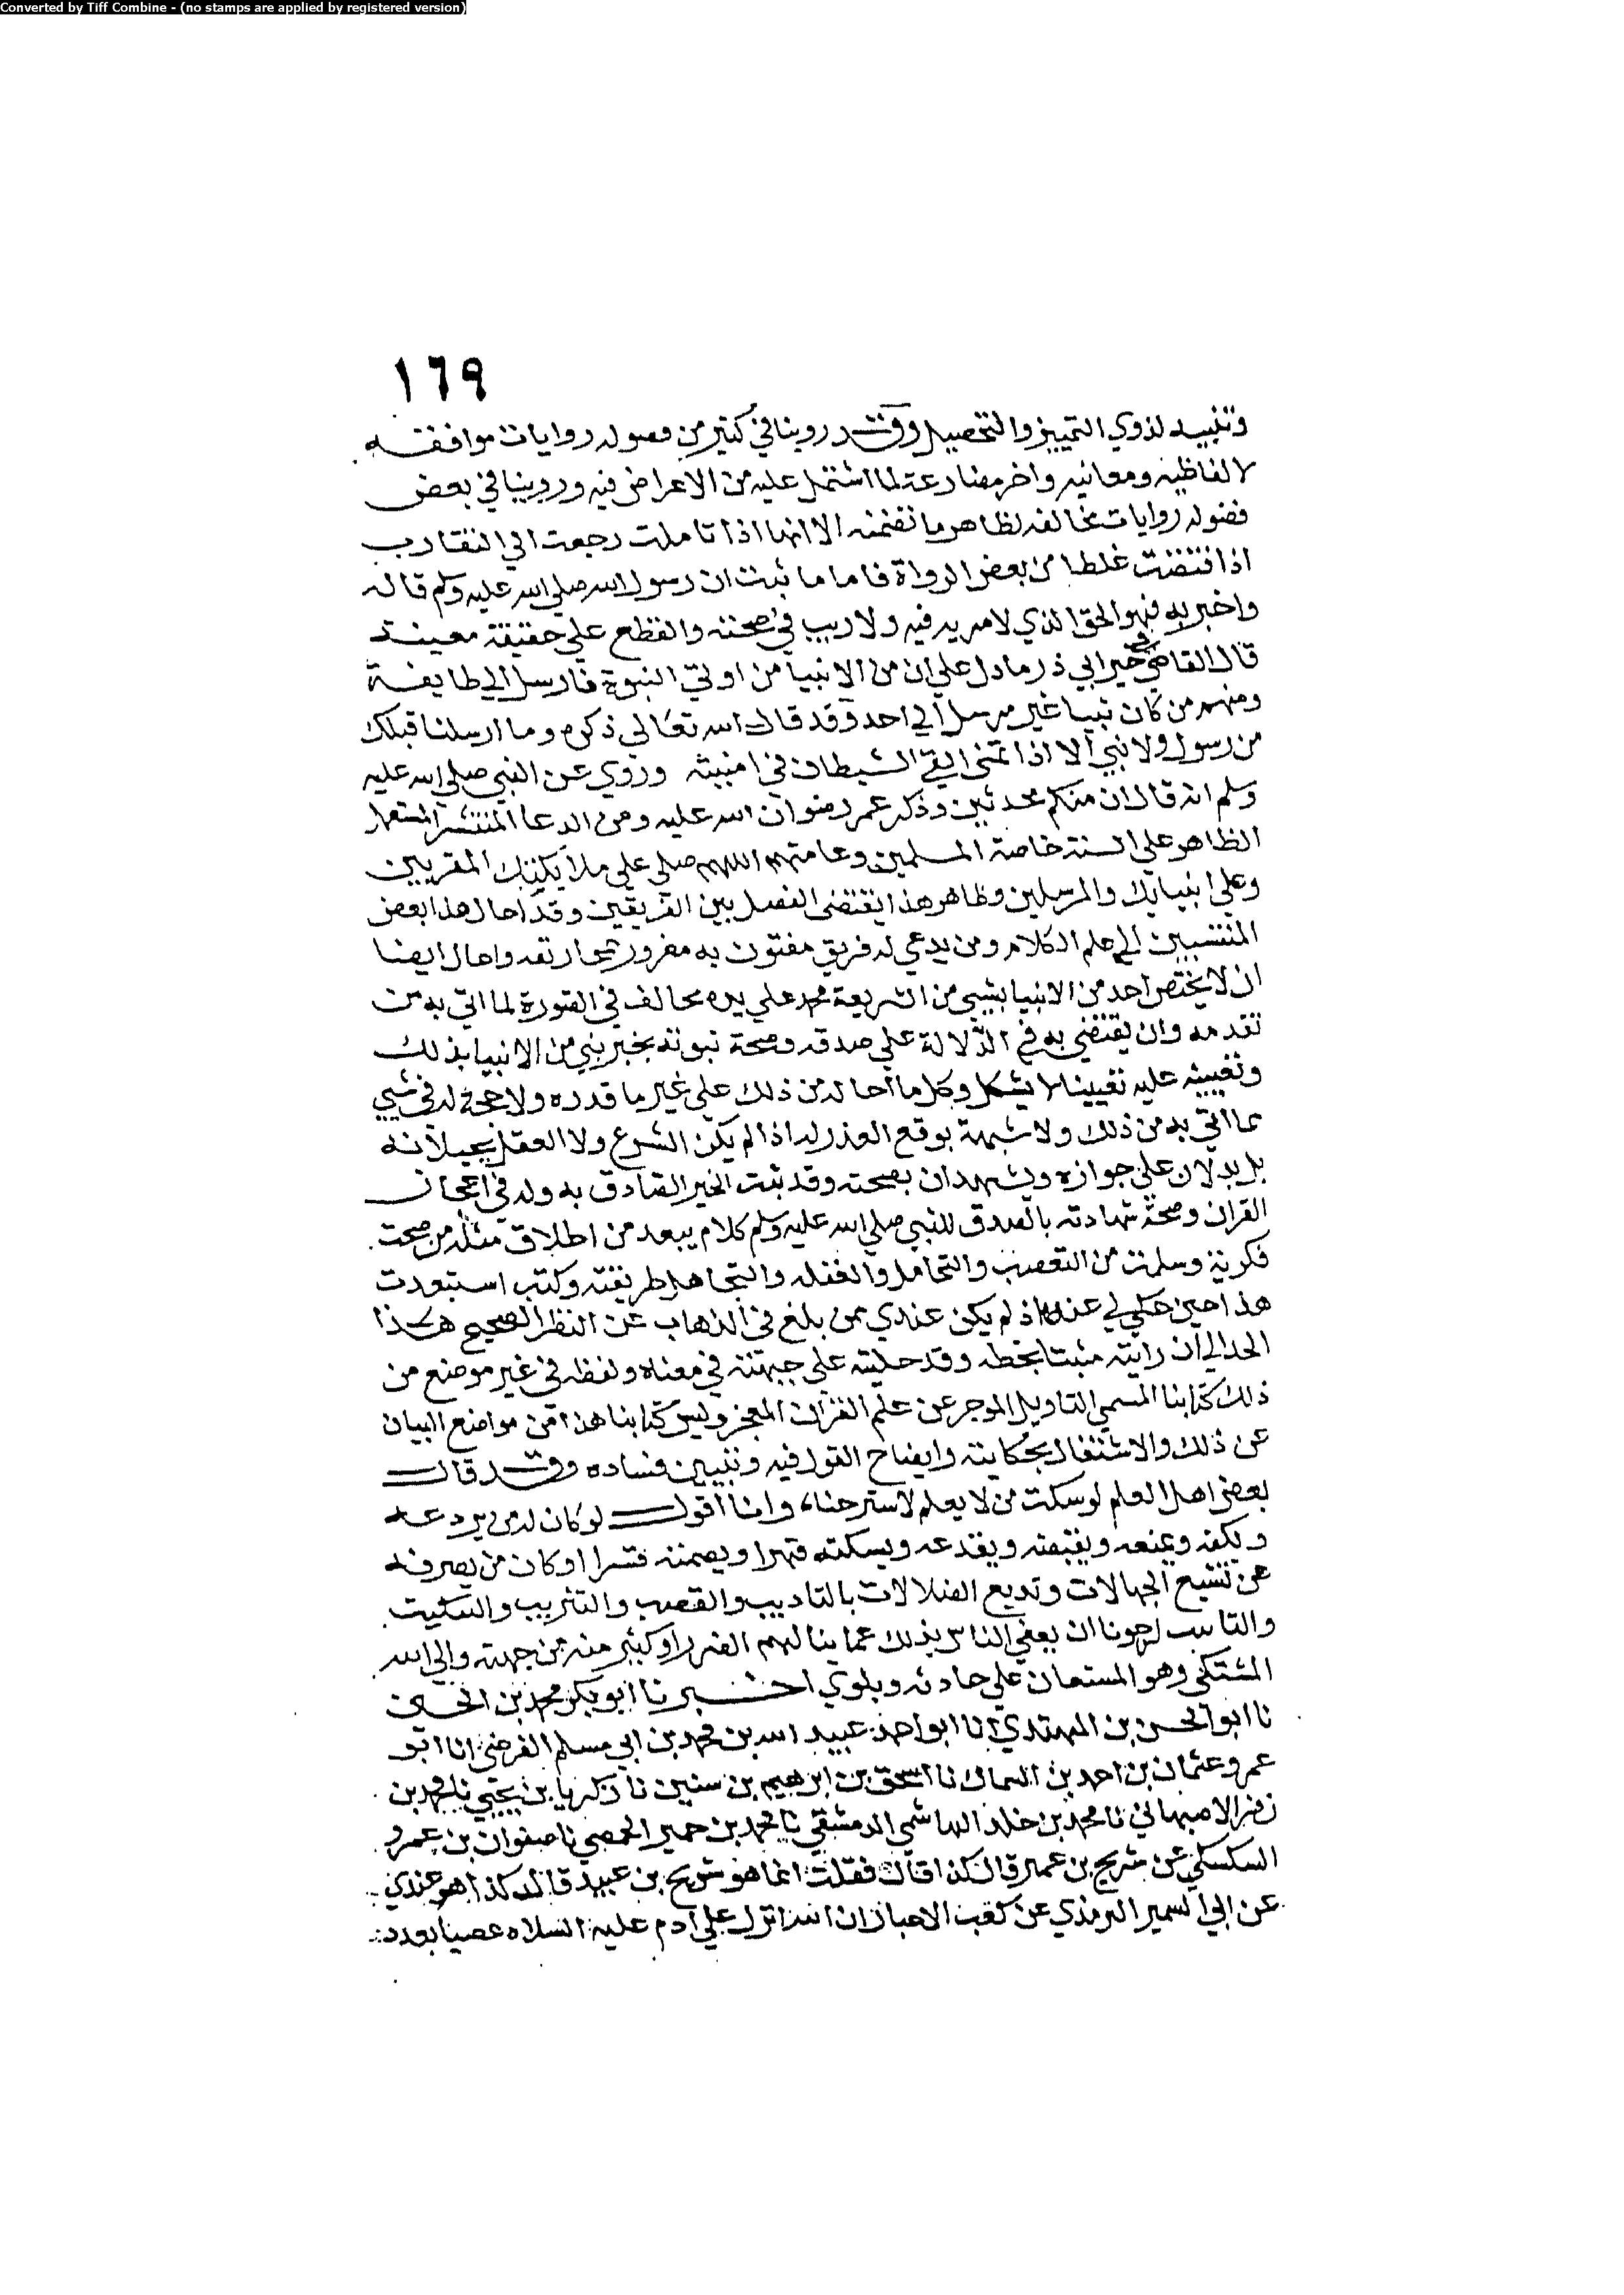 Converted by Tiff Combine - (no stamps are applied by registered version)
١٦٩
وتنبيه لذوي التمييز والتحصيل وقد روينا في كثير من فصوله روايات موافقه
لالفاظه ومعانيه واخر مضارعة لما اشتمل عليه من الاعراض فيه وروينا في بعض
فصوله روايات مخالفه لظاهر ما تضمنه الا انها اذا تاملت رجعت الي التقارب
اذا اقتضت غلطا من بعض الرواة فاما ما ثبت ان رسول الله صلي الله عليه وسلم قاله
واخبر به فهو الحق الذي لا مريه فيه ولا ريب في صحته والقطع علي حقيقة معينه
قال القاضي في خبر ابي ذر ما دل علي ان من الانبيا من اوتي النبوة فارسل الي طايفة
ومنهم من كان نبيا غير مرسل الي احد وقد قال الله تعالي ذكره وما ارسلنا قبلك
من رسول ولا نبي الا اذا تمني القي الشيطان في امنيته وروي عن النبي صلي الله عليه
وسلم انه قال ان منكم محدثين وذكر عمر رضوان الله عليه ومن الدعا المنتشر المستعمل
الظاهر علي السنة خاصة المسلمين وعامتهم اللهم صلي علي ملايكتك المقربين
وعلي انبيايك والمرسلين وظاهر هذا يقتضي الفصل بين الفريقين وقد احال هذا بعض
المنتسبين الي علم الكلام ومن يدعي له فريق مفتون به مغرور واحال ايضا
ان لا يختص احد من الانبيا بشيي من الشريعة محمد علي يده مخالف في الصورة لما اتي به من
تقدمه وان يقتضي به في الدلالة علي صدقه وصحة نبوته بخبر نبي من الانبيا بذلك
وتعيينه عليه تعيينا لا يشكل وكل ما احاله من ذلك علي غير ما قدره ولا حجة له في شيي
مما اتي به من ذلك ولا شبهة يوقع العذر له اذا لم يكن الشرع ولا العقل يحيلانه
بل يدلان علي جوازه ويشهدان بصحته وقد ثبت الخبر الصادق به وله في اعجاز
القران وصحة شهادته بالصدق للنبي صلي الله عليه وسلم كلام يبعد من اطلاق مثله من صحت
فكرته وسلمت من التعصب والتحامل والغفله والتجاهل طريقته وكنت استبعدت
هذا حين حكي لي عنه اذ لم يكن عندي ممن بلغ في الذهاب عن النظر الصحيح هكذا
الحد الي ان رايته مثبتا بخطه وقد حكيته علي جهته في معناه ولفظه في غير موضع من
ذلك كتابنا المسمي التاويل الموجز عن علم القران المعجز وليس كتابنا هذا من مواضع البيان
عن ذلك والاشتغال بحكايته وايضاح القول فيه وتبيين فساده وقد قال
بعض اهل العلم لو سكت من لا يعلم لاسترحنا، وانا اقول لو كان له من يردعه
ويكفه ويمنعه ويقبضه ويقدعه ويسكته قهرا ويصمته قسرا او كان من يصرفه
عن تشيع الجهالات وتديع الضلالات بالتاديب والقصب والتثريب والتنكيت
والتانيب لرجونا ان يعفي الناس بذلك عما ينالهم الضرر او كثير منه من جهته والي الله
المشتكي وهو المستعان علي حادثه وبلوي اخبرنا ابو بكر محمد بن الحسين
نا ابو الحسن بن المهتدي انا ابو احمد عبيد الله بن محمد بن ابي مسلم الفرضي انا ابو
عمرو عثمان بن احمد بن السماك نا اسحق بن ابرهيم بن سنين نا زكريا بن يحيي نا محمد بن
نصر الاصبهاني نا محمد بن خلد الهاشمي الدمشقي نا محمد بن حمير الحمصي نا صفوان بن عمرو
السكسكي عن شريح بن عمير قال كذا قال فقلت انما هو شريح بن عبيد قال كذا هو عندي
عن ابي السمير البرمذي عن كعب الاحبار ان الله انزل علي ادم عليه السلام عصيا بعدد